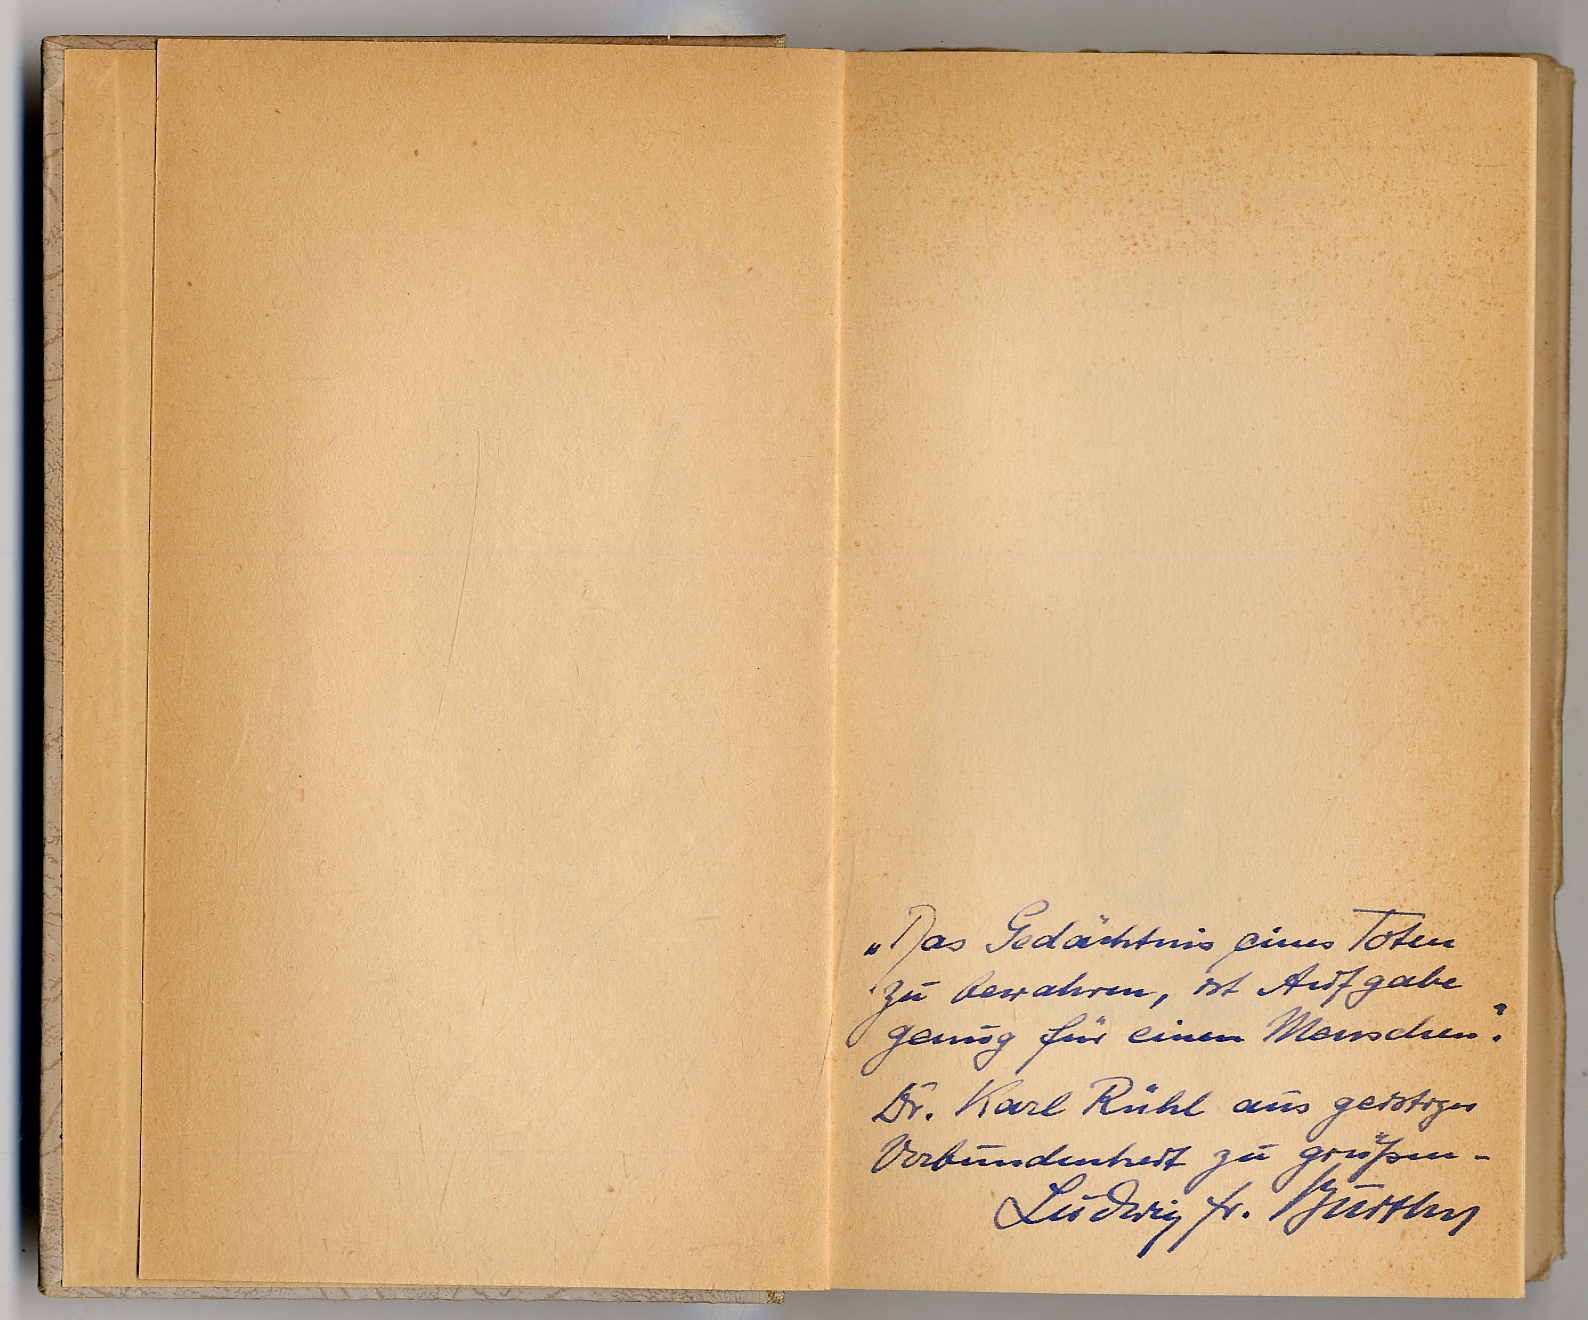 „Das Gedächtnis eines Toten
zu bewahren, ist Aufgabe
genug für einen Menschen“.
Dr. Karl Rühl aus geistiger
Verbundenheit zu grüßen -
Ludwig fr.